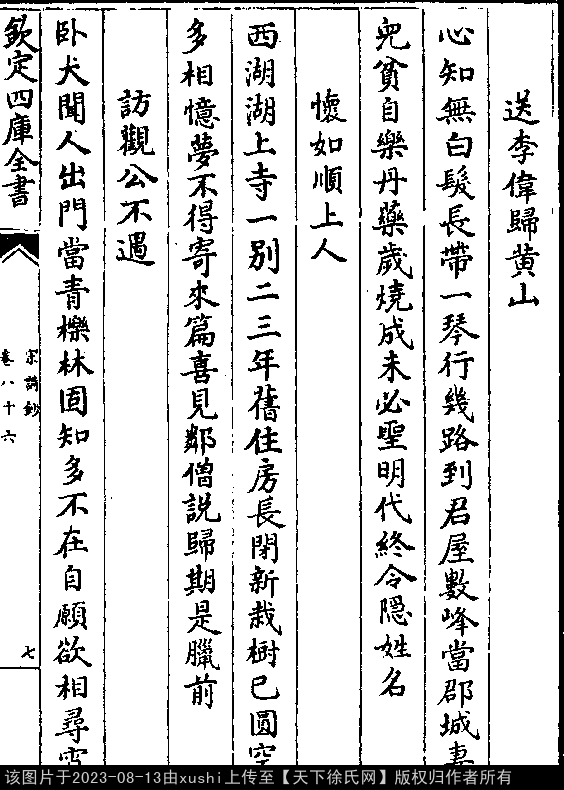 送李偉歸黄山
心知無白髮長帶一琴行幾路到君屋數峰當郡城妻
兒貧自樂丹藥歲燒成未必聖明代終令隱姓名
懷如順上人
西湖湖上寺一别二三年舊住房長閉新栽樹已圓空
多相憶夢不得寄來篇喜見鄰僧説歸期是臘前
訪觀公不遇
卧犬聞人出門當青櫟林固知多不在自願欲相尋雪
欽定四庫全書
宋詩鈔
卷八十六
七
该图片于2023-08-13由xushi上传至【天下徐氏网】版权归作者所有